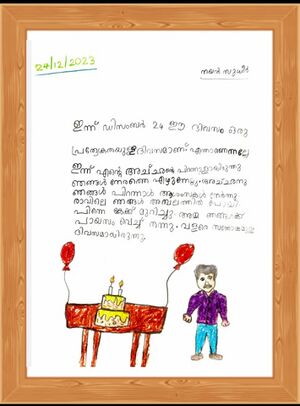 24/12/2023
നയൻ സുധീർ
ഇന്ന് ഡിസംബർ 24 ഈ ദിവസം ഒരു
പ്രത്യേകതയുള്ള ദിവസമാണ് എന്താണെന്നല്ലേ
ഇന്ന് എന്റെ അച്ഛന്റെ പിറന്നാളായിരുന്നു
ഞങ്ങൾ നേരത്തെ എഴുന്നേറ്റു അച്ഛനു
ഞങ്ങൾ പിറന്നാൾ ആശംസകൾ നേർന്നു.
രാവിലെ ഞങ്ങൾ അമ്പലത്തിൽ പോയി
പിന്നെ കേക്ക് മുറിച്ചു അമ്മ ഞങ്ങൾക്ക്
പായസം വെച്ച് തന്നു. വളരെ സന്തോഷമുള്ള
ദിവസമായിരുന്നു.